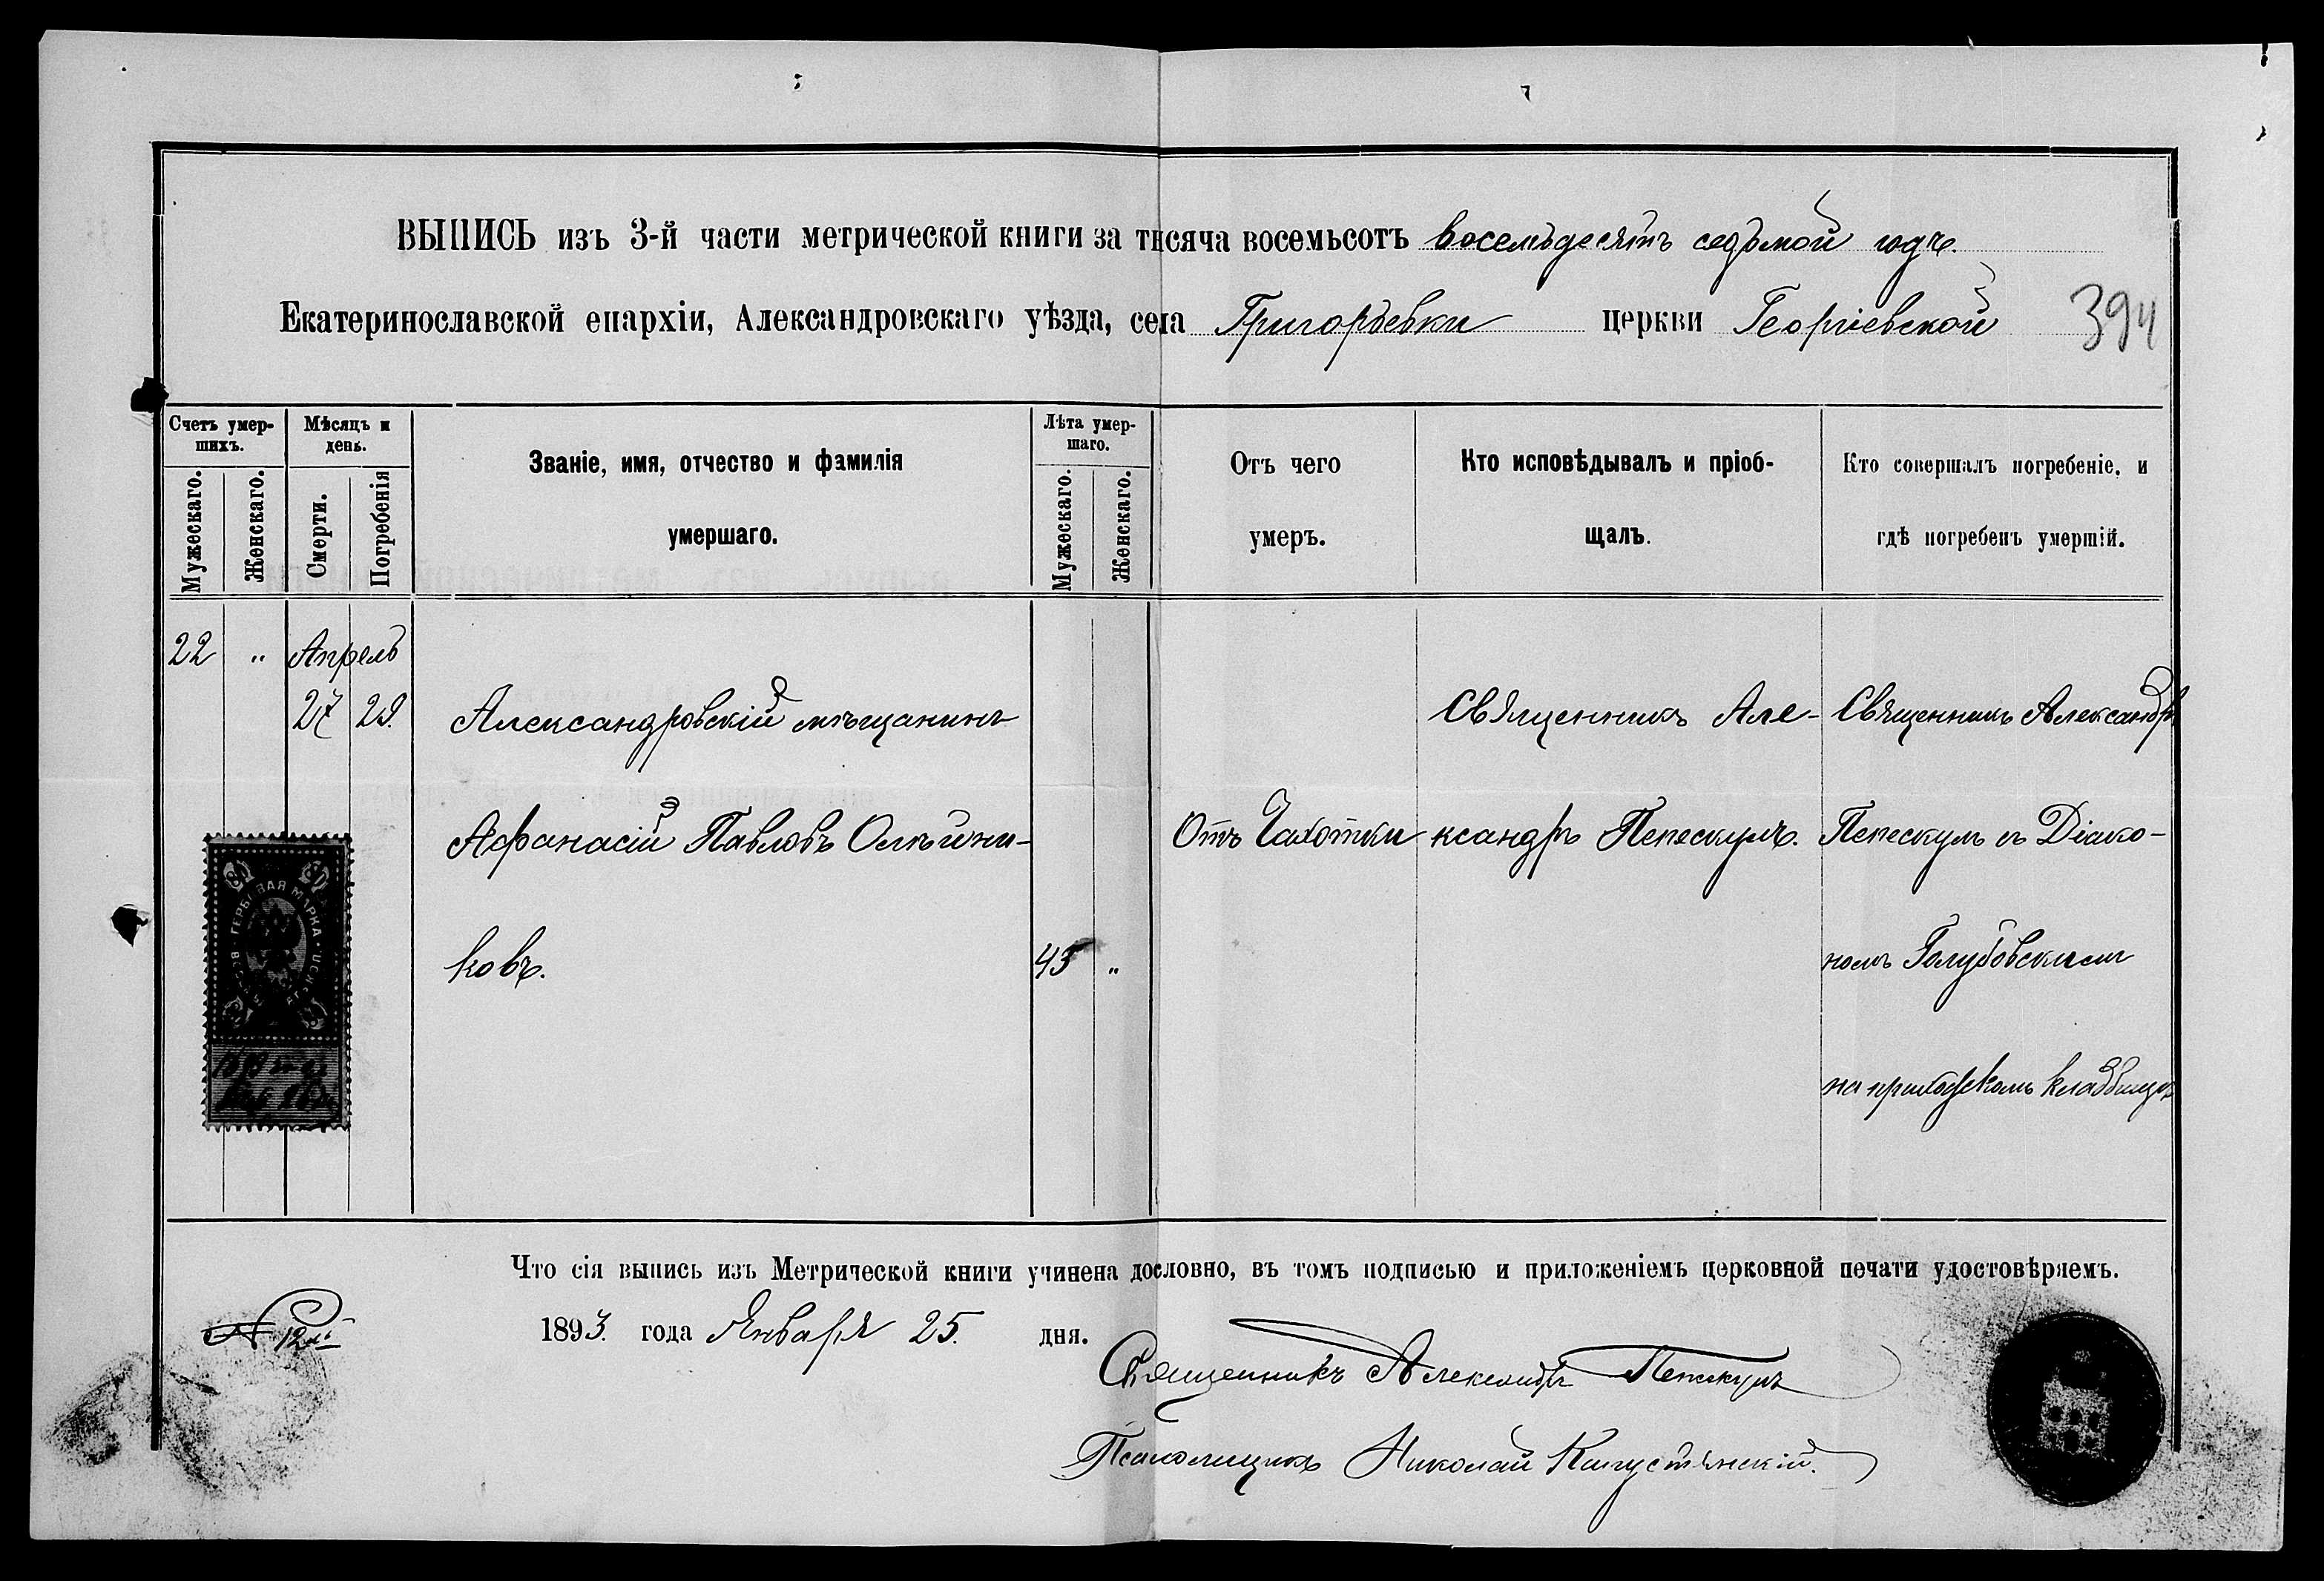 ВЫПИСЬ изъ 3-й части метрической книги за тысяча восемьсотъ восемьдесятъ седьмой годъ.
Екатеринославской епархіи, Александровскаго уѣзда, села Григорьевки церкви Георгіевской
394
Счетъ умер-
шихъ.
Мужескаго.
Женскаго.
Мѣсяцъ и
день.
Смерти.
Погребенія
Званіе, имя, отчество и фамилія
умершаго.
Лѣта умер-
шаго.
Мужескаго.
Женскаго.
Отъ чего
умеръ.
Кто исповѣдывалъ и пріоб-
щалъ.
Кто совершалъ погребеніе, и
гдѣ погребенъ умершій.
22 " Апрель
27 29.
Александровскій мѣщанинъ
Афанасій Павловъ Олѣйни-
ковъ.
45 "
Отъ Чахотки
Священникъ Але-
ксандръ Пепескулъ.
Священникъ Александръ
Пепескулъ съ Діако-
номъ Голубовскимъ
на приходскомъ кладбищѣ
ГЕРБОВАЯ МАРКА
Что сія выпись изъ Метрической книги учинена дословно, въ томъ подписью и приложеніемъ церковной печати удостовѣряемъ.
№ 12й
1893. года Января 25. дня.
Священникъ Александръ Пепескулъ
Псаломщикъ Николай Капустянскій.